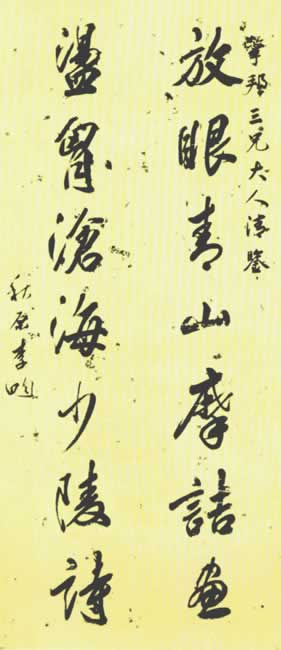 邦三兄大人清鑒
放眼青山摩詰畫
盪胷滄海少陵詩
秋原李